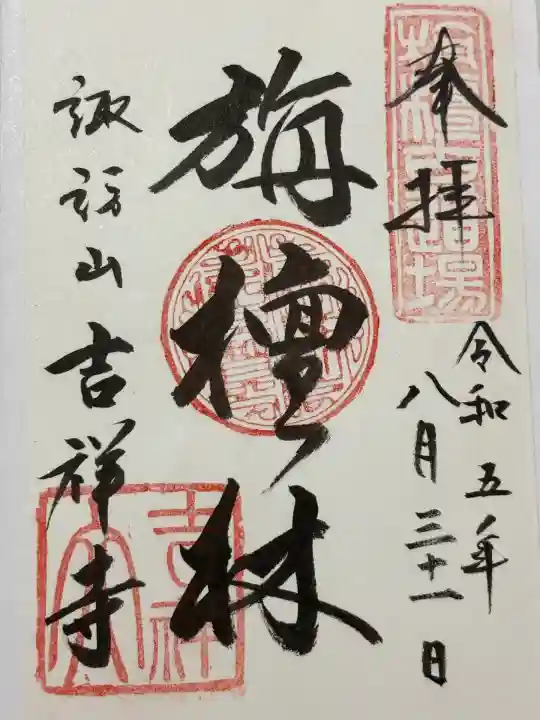 奉拝
令和五年
八月三十一日
旃檀林
諏訪山吉祥寺
吉祥